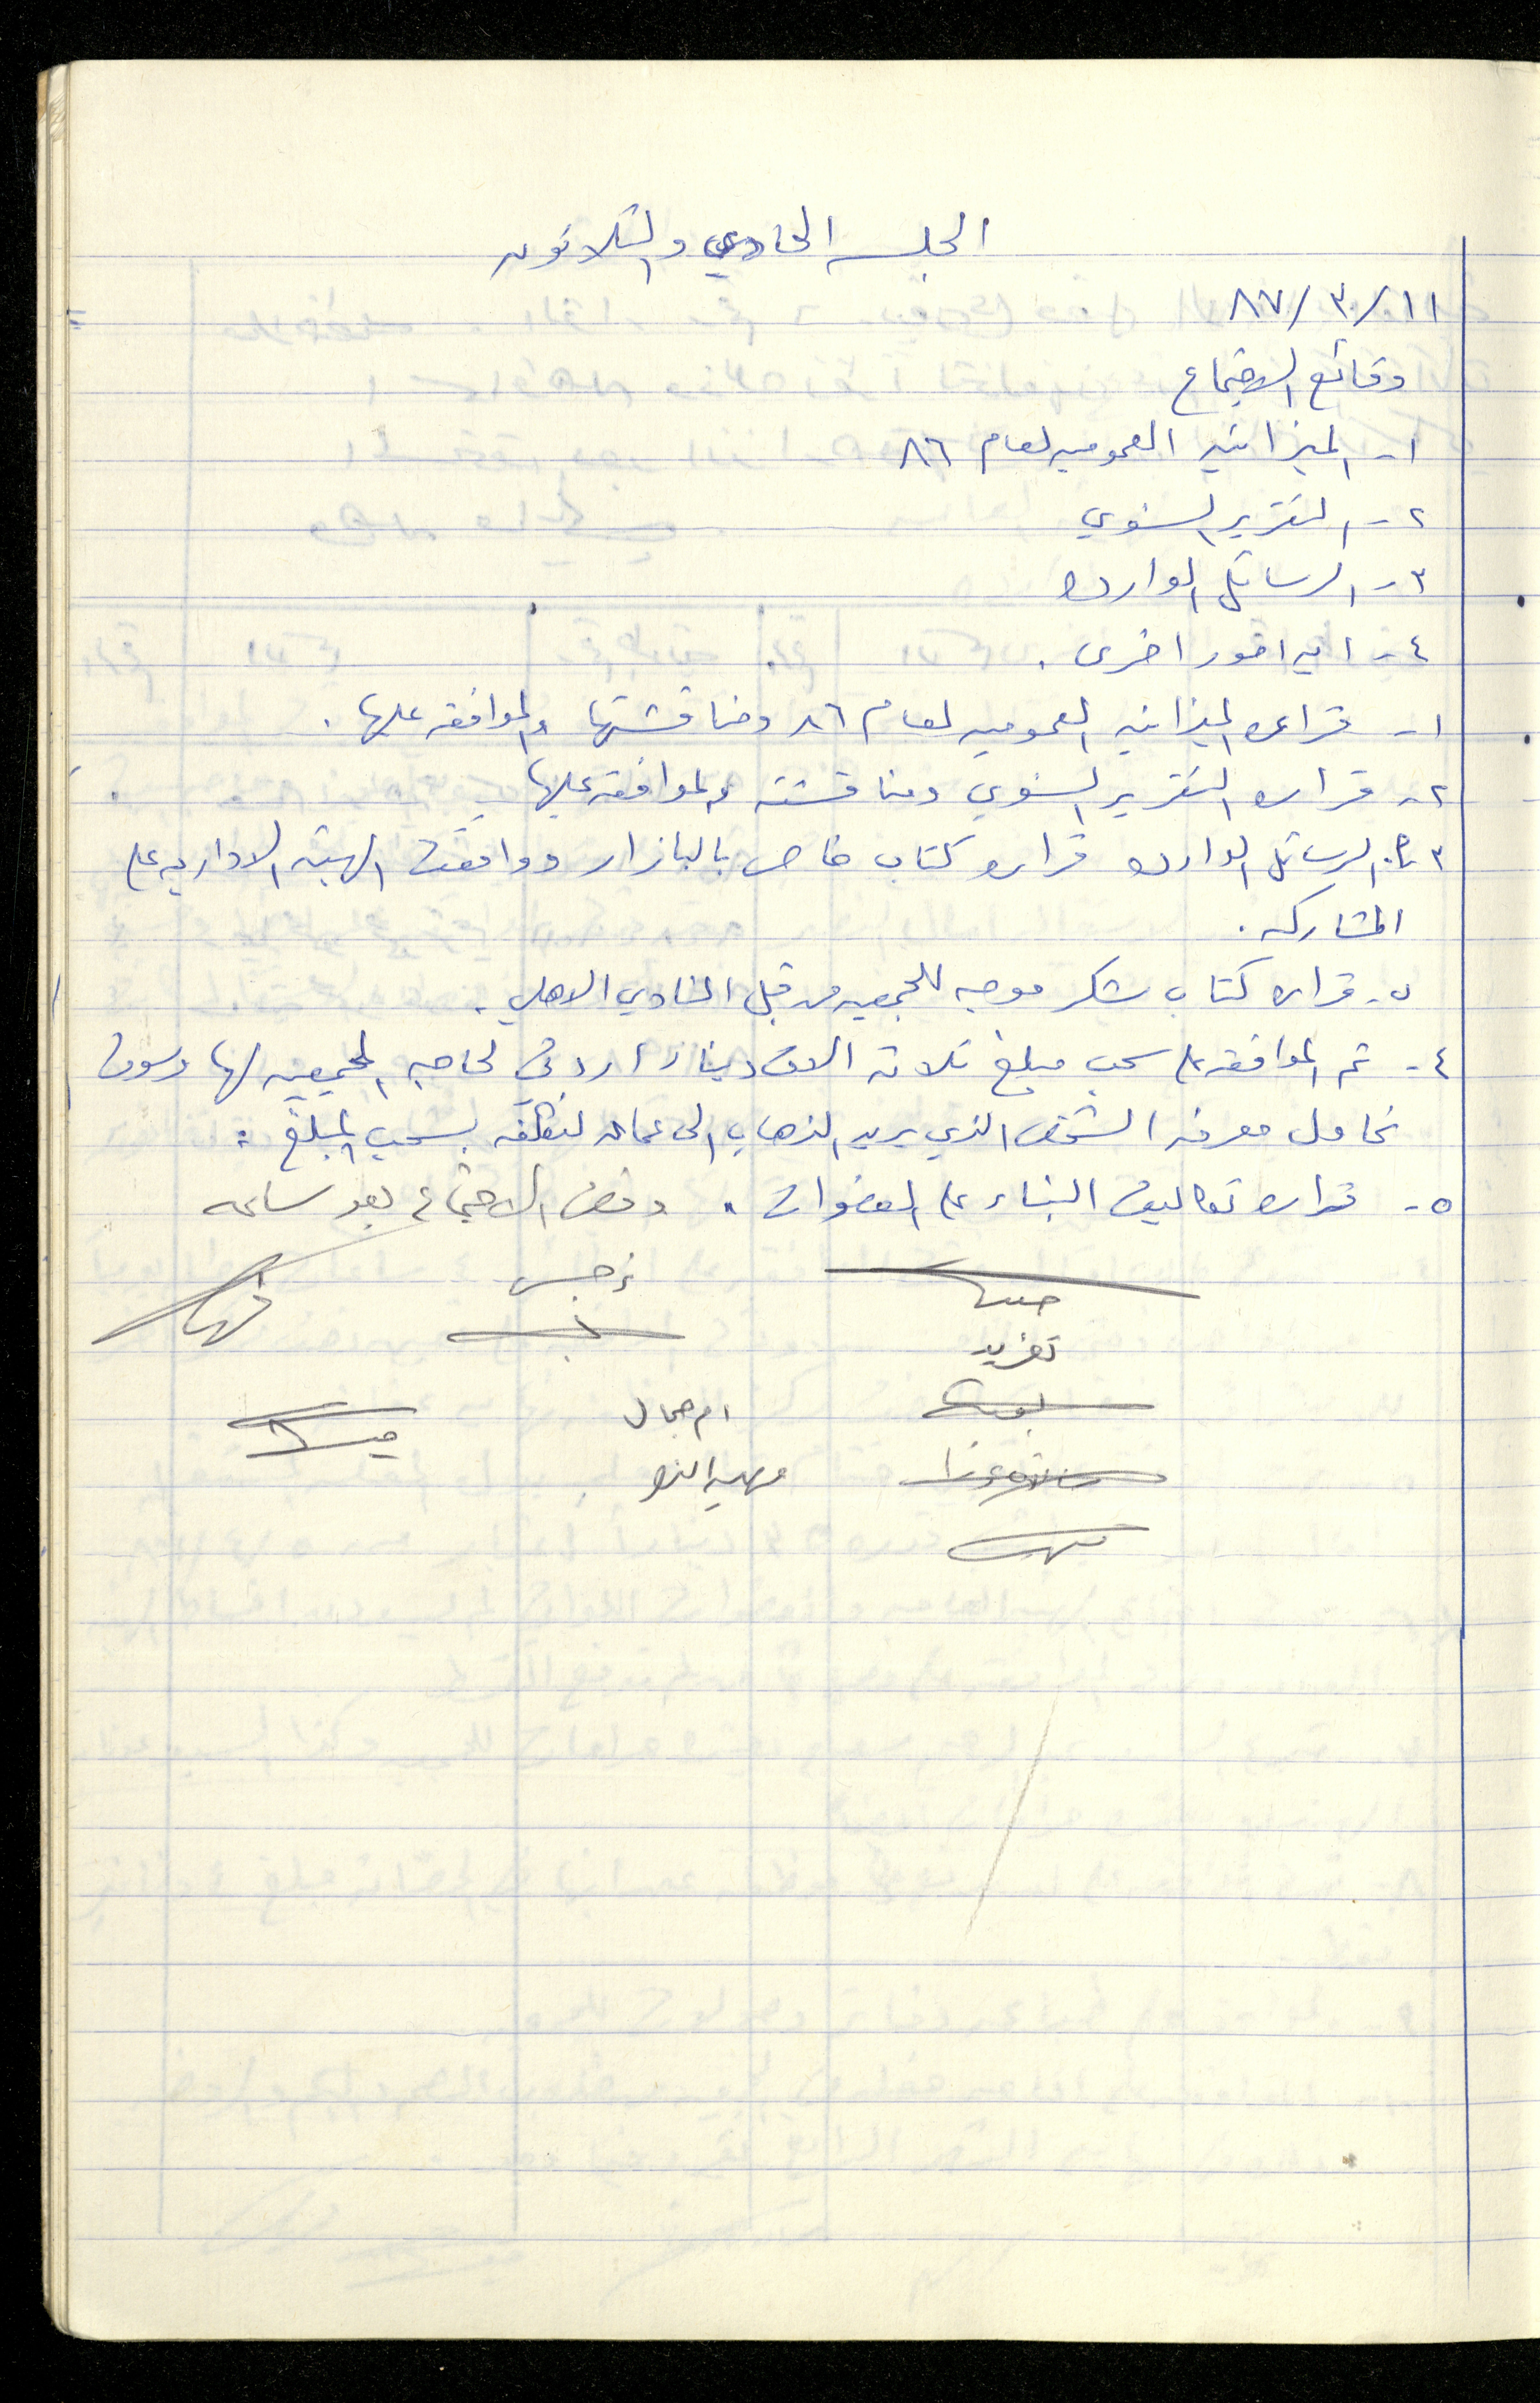 الجلسه الحادي والثلاثون
١١/٣/٨٧
وقائع الاجتماع
١- الميزانيه العموميه لعام ٨٦
٢- التقرير السنوي
٣- الرسائل الوارده
٤- ايه امور اخرى .
١- قراءه الميزانيه العموميه لعام ٨٦ ومناقشتها والموافقه عليها .
٢- قراءه التقرير السنوي ومناقشته والموافقه عليها
٣- الرسائل الوارده قراءه كتاب خاص بالبازار ووافقت الهيئه الاداريه على
المشاركه .
ب- قراءه كتاب شكر موجه للجمعيه من قبل النادي الاهلي .
٤- تم الموافقه على سحب مبلغ ثلاثه الاف دينار اردني لحاجه الجمعيه لها وسوف
نحاول معرفه الشخص الذي يريد الذهاب الى عمان لنكلفه بسحب المبلغ .
٥- قراءه تكاليف البناء على العضوات . وفض الاجتماع بعد ساعه
نرجس
تغريد
ام جمال